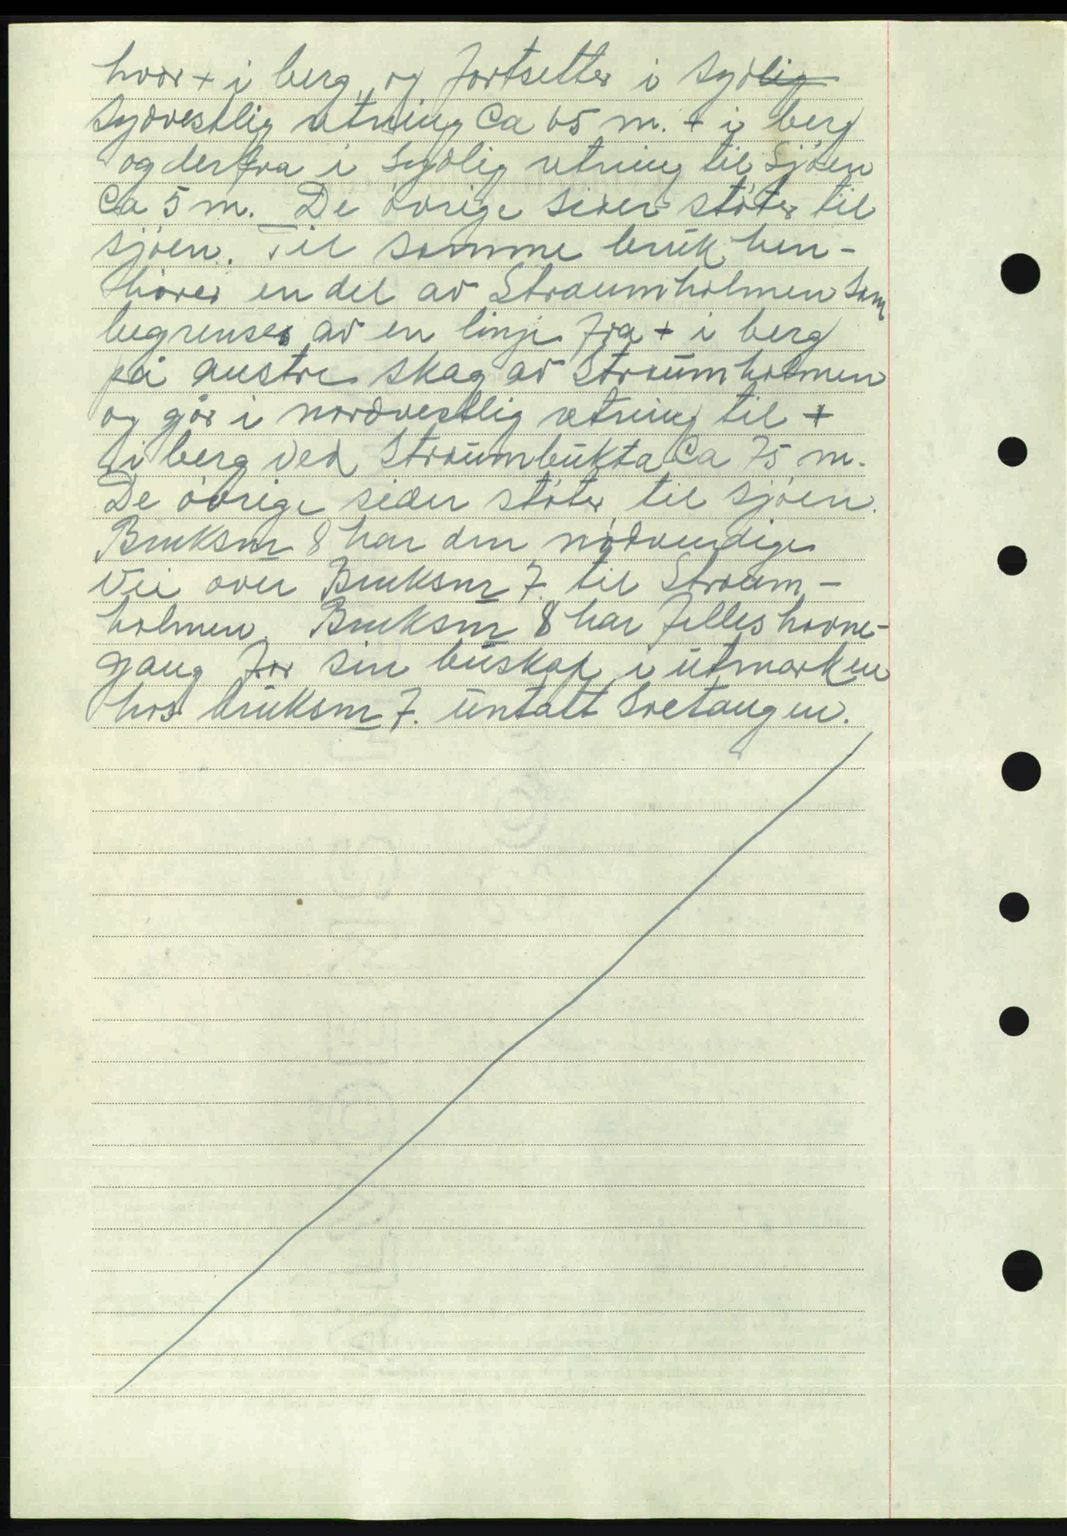 hvor + i berg, og fortsetter i sydlig
sydvestlig retning Ca 65 m. + i berg
og derfra i sydlig retning til sjøen
Ca 5 m. De øvrige sider støter til
sjøen. Til samme bruk hen-
hører en del av Straumholmen som
begrenses av en linje fra + i berg
på austre skag av Straumholmen
og går i nordvestlig retning til +
i berg ved Straumbukta Ca 75 m.
De øvrige sider støter til sjøen.
Bruksnr 8 har den nødvendige
vei over Bruksnr 7. til Straum-
holmen. Bruksnr 8 har felles havne-
gang for sin buskap i utmarken
hos bruksnr 7. untatt